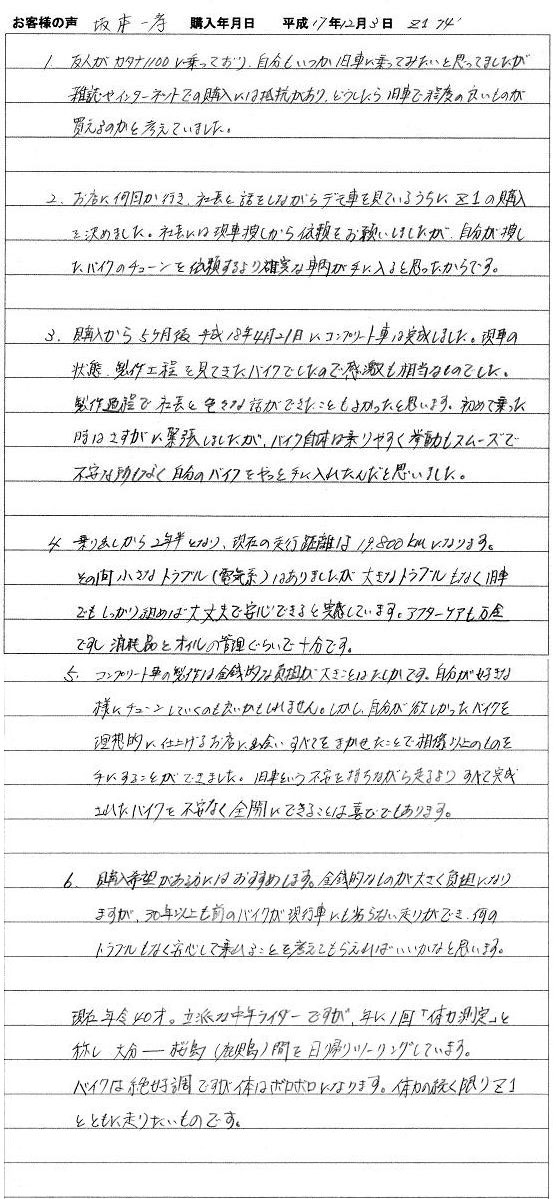 お客様の声 坂本一彦 購入年月日 平成17年12月3日 Z1 74'
1. 友人がカタナ1100に乗っており、自分もいつか旧車に乗ってみたいと思ってましたが
雑誌やインターネットでの購入には抵抗があり、どうしたら旧車で程度の良いものが
買えるのかと考えていました。
2. お店に何回か行き、社長と話をしながらデモ車を見ているうちにZ1の購入
を決めました。社長には現車捜しから依頼をお願いしましたが、自分が捜し
たバイクのチューンを依頼するより確実な車両が手に入ると思ったからです。
3. 購入から5ヶ月後 平成18年4月21日にコンプリート車は完成しました。現車の
状態、製作工程を見てきたバイクでしたので感激も相当なものでした。
製作過程で社長と色々な話ができたこともよかったと思います。初めて乗った
時はさすがに緊張しましたが、バイク自体は乗りやすく挙動もスムーズで
不安な動もなく自分のバイクをやっと手に入れたんだと思いました。
4 乗り出しから2年半となり、現在の走行距離は19.800kmになります。
その間小さなトラブル(電気系)はありましたが大きなトラブルもなく旧車
でもしっかり組めば大丈夫で安心できると実感しています。アフターケアも万全
ですし消耗品とオイルの管理ぐらいで十分です。
5. コンプリート車の製作は金銭的な負担が大きことはたしかです。自分が好きな
様にチューンしていくのも良いかもしれません。しかし、自分が欲しかったバイクを
理想的に仕上げるお店に出会いすべてをまかせたことで想像以上のものを
手にすることができました。旧車という不安を持ちながら走るよりすべて完成
されたバイクを不安なく全開にできることは喜びでもあります。
6. 購入希望がある方にはおすすめします。金銭的なものが大きく負担になり
ますが、30年以上も前のバイクが現行車にも劣らない走りができ、何の
トラブルもなく安心して乗れることを考えてもらえればいいかなと思います。
現在年令40才。立派な中年ライダーですが、年に1回「体力測定」と
称し 大分―桜島(鹿児島)間を日帰りツーリングしています。
バイクは絶好調ですが体はボロボロになります。体力の続く限りZ1
とともに走りたいものです。